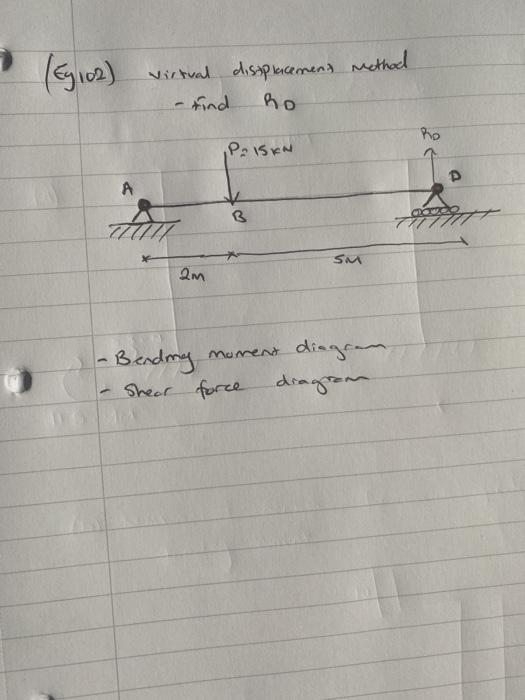 (Eg 102) virtual displacement Method
- find RD
P= 15 kN
RD
A
D
B
2m
5M
- Bending moment diagram
- Shear force diagram